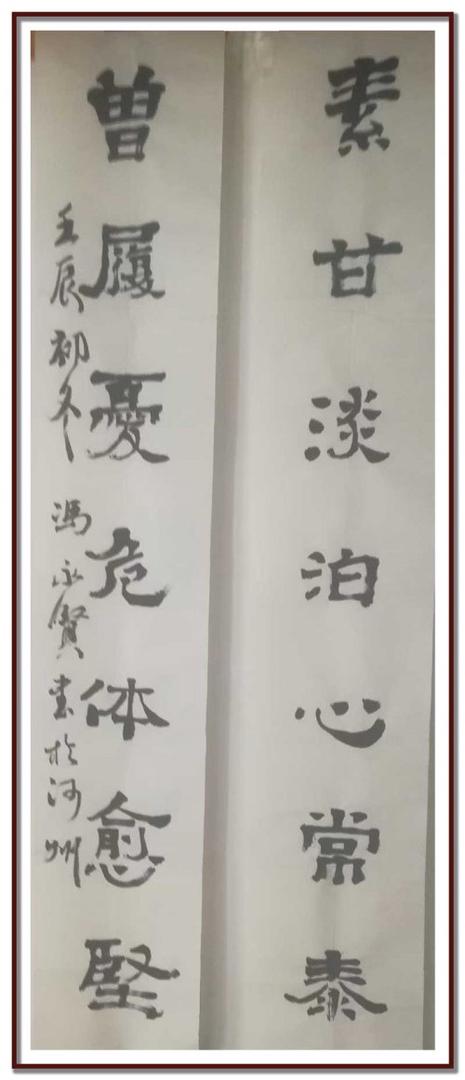 素甘淡泊心常泰
曾履憂危体愈堅
壬辰初冬 馮永賢書於河州